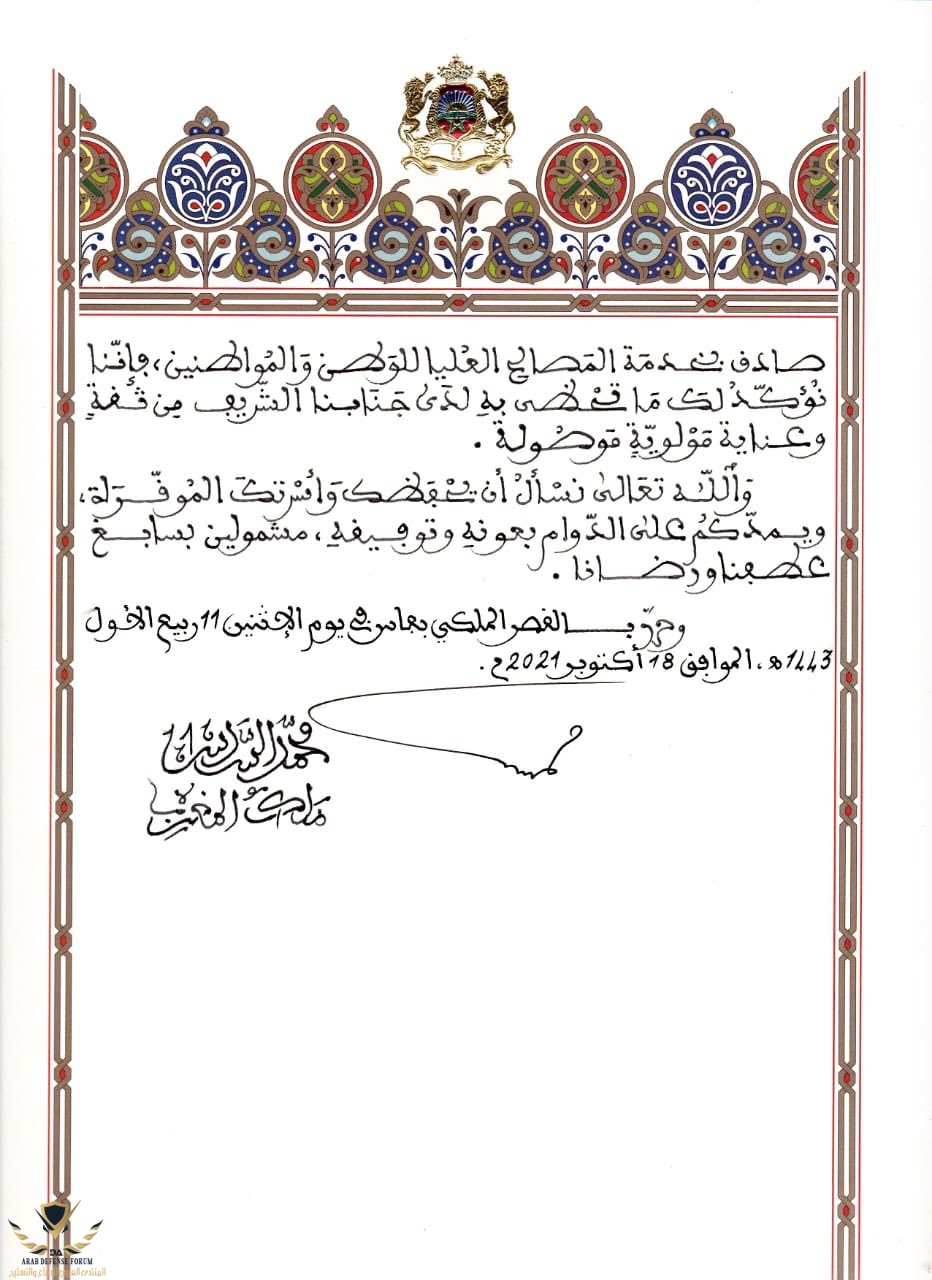 صادق بخدمة المصالح العليا للوَطن وَالمُواطنين، فإنّنا
نُؤكّدُ لكَ مَا تحْظى بهِ لدَى جَنَابنا الشّريف مِن ثقةٍ
وعناية مَوْلويّةٍ مَوصُولة.
وَاللّه تعَالىٰ نسْألُ أن يحْفظكَ وَأسْرتكَ المُوقّرة،
ويمدّكُم علىٰ الدّوام بعونهِ وتوفيقهِ، مشمولين بسابغ
عطفنا ورضانا.
وحرّر بالقصر الملكي بفاس في يوم الإثنين 11 ربيع الأول
1443هـ، الموافق 18 أكتوبر 2021م.
محمد السادس
ملك المغرب
ARAB DEFENSE FORUM
المنتدى العربي للدفاع والتسليح